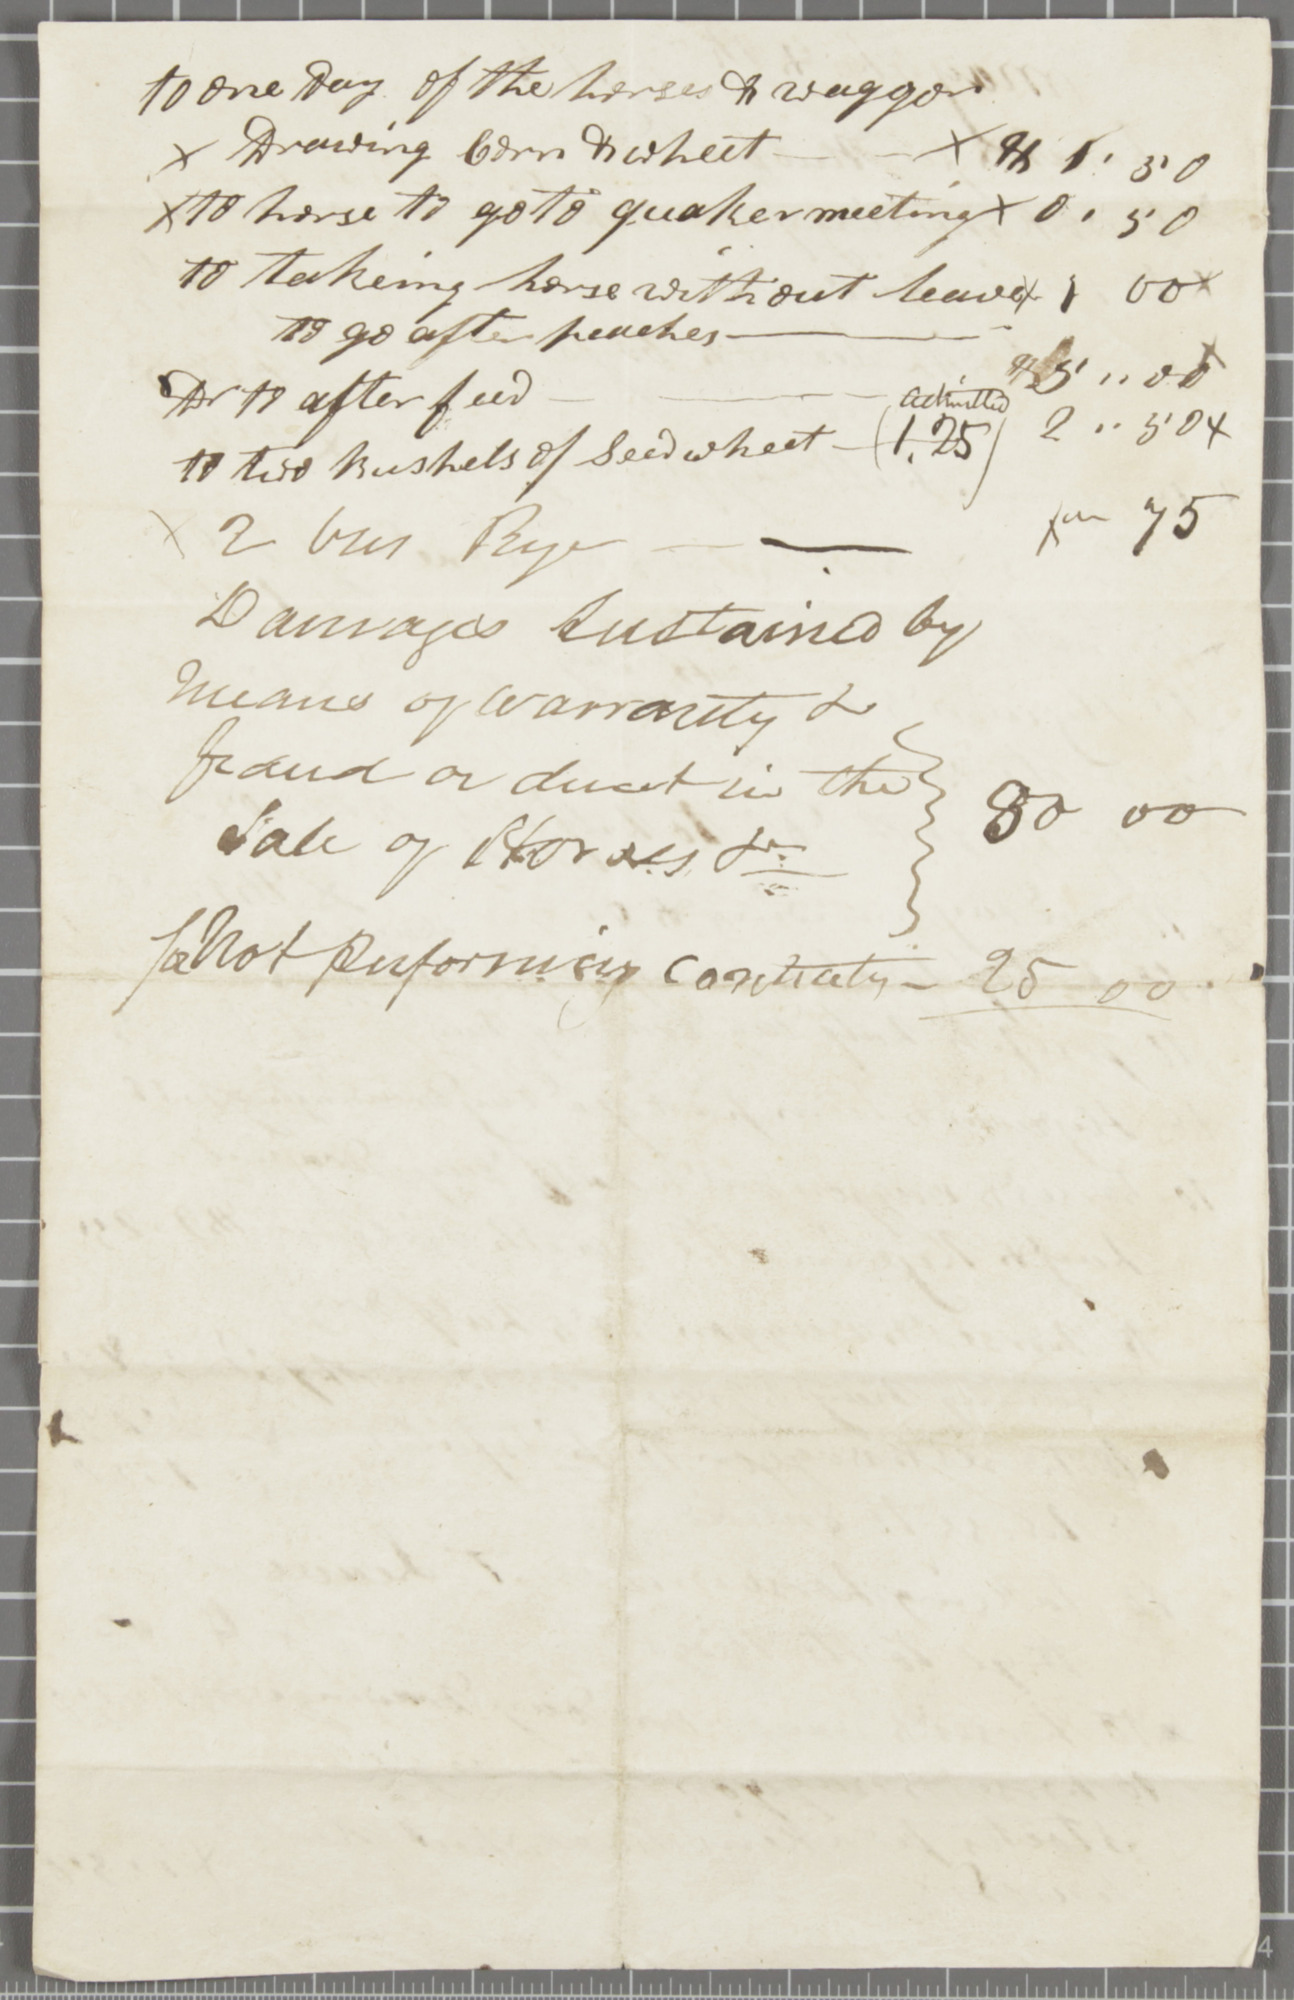 to one Day of the horses & waggon
x Drawing Corn & wheet — — x $ 1 . 50
x to horse to go to quaker meeting x 0 . 50
to takeing horse without leave x 1 00 x
to go after peaches —
Dr to after feed — — $ 5 .. 00 x
admitted
to two bushels of Seed wheet — (1.25) 2 .. 50 x
x 2 bus Rye — — x " 75
Damages Sustained by
means of Warranty &
fraud or deceit in the
Sale of Horses &c 80 00
for Not Performing Contract — 25 00
4